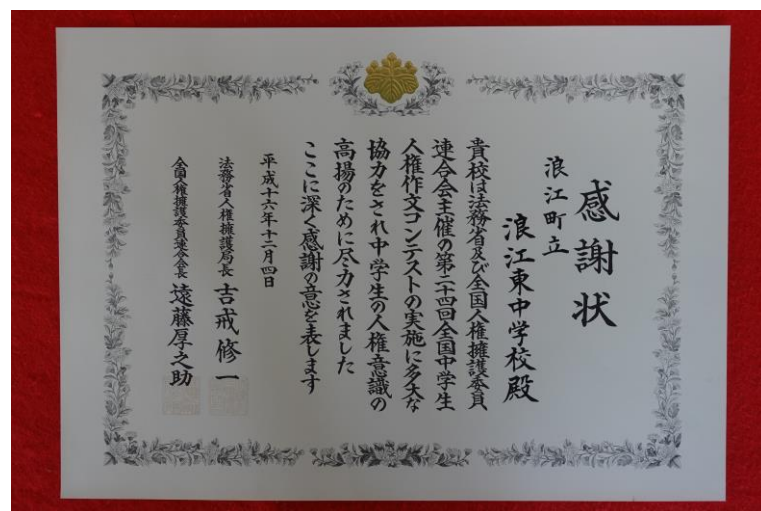 感謝状
浪江町立
浪江東中学校殿
貴校は法務省及び全国人権擁護委員
連合会主催の第二十四回全国中学生
人権作文コンテストの実施に多大な
協力をされ中学生の人権意識の
高揚のために尽力されました
ここに深く感謝の意を表します
平成十六年十二月四日
法務省人権擁護局長 吉戒修一
全国人権擁護委員連合会長 遠藤厚之助